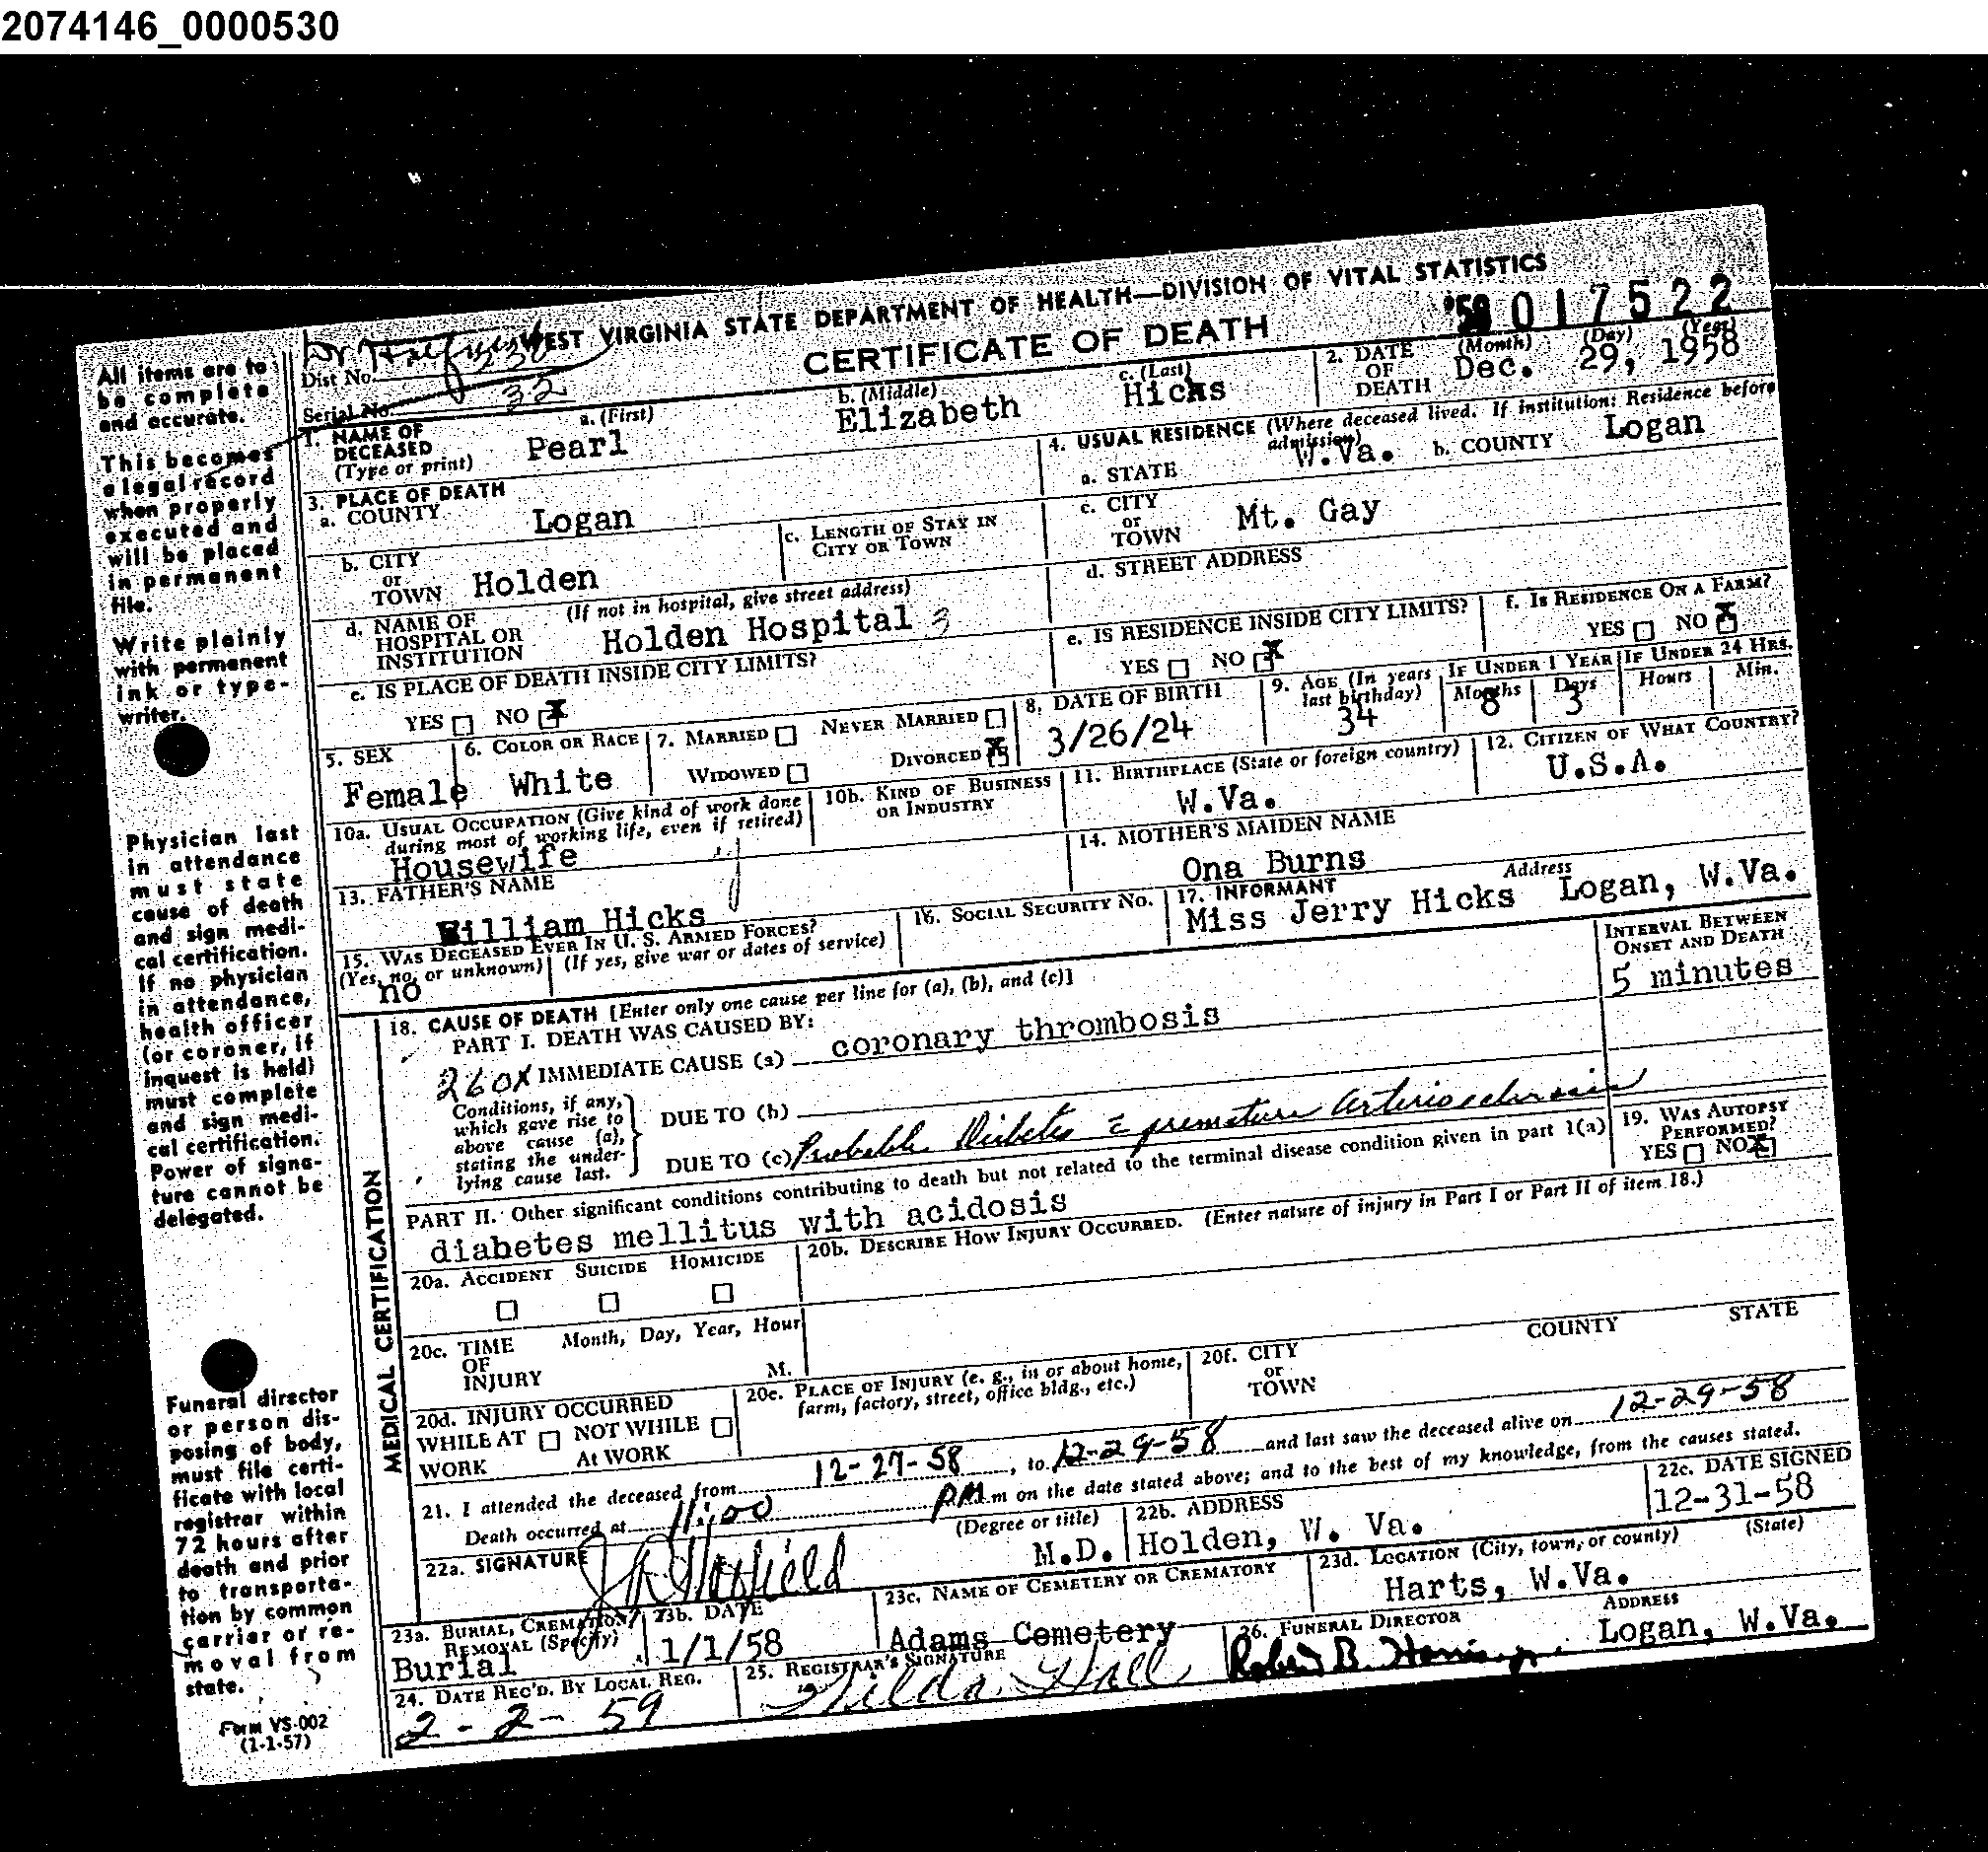 2074146_0000530
WEST VIRGINIA STATE DEPARTMENT OF HEALTH—DIVISION OF VITAL STATISTICS
CERTIFICATE OF DEATH
017522
All items are to be complete and accurate.
This becomes a legal record when properly executed and will be placed in permanent file.
Write plainly with permanent ink or typewriter.
Physician last in attendance must state cause of death and sign medical certification. If no physician in attendance, health officer (or coroner, if inquest is held) must complete and sign medical certification. Power of signature cannot be delegated.
Funeral director or person disposing of body, must file certificate with local registrar within 72 hours after death and prior to transportation by common carrier or removal from state.
Form VS-002
(1-1-57)
Dist No.
Serial No. 32
1. NAME OF DECEASED (Type or print) a. (First) Pearl b. (Middle) Elizabeth c. (Last) Hicks
2. DATE OF DEATH (Month) (Day) (Year) Dec. 29, 1958
3. PLACE OF DEATH
a. COUNTY Logan
b. CITY or TOWN Holden
c. LENGTH OF STAY IN CITY OR TOWN
d. NAME OF HOSPITAL OR INSTITUTION (If not in hospital, give street address) Holden Hospital 3
e. IS PLACE OF DEATH INSIDE CITY LIMITS?
YES NO X
4. USUAL RESIDENCE (Where deceased lived. If institution: Residence before admission)
a. STATE W.Va. b. COUNTY Logan
c. CITY or TOWN Mt. Gay
d. STREET ADDRESS
e. IS RESIDENCE INSIDE CITY LIMITS?
YES NO X
f. IS RESIDENCE ON A FARM?
YES NO X
5. SEX Female
6. COLOR OR RACE White
7. MARRIED NEVER MARRIED
WIDOWED DIVORCED X
8. DATE OF BIRTH 3/26/24
9. AGE (In years last birthday) 34
IF UNDER 1 YEAR Months 8 Days 3
IF UNDER 24 HRS. Hours Min.
10a. USUAL OCCUPATION (Give kind of work done during most of working life, even if retired)
Housewife
10b. KIND OF BUSINESS OR INDUSTRY
11. BIRTHPLACE (State or foreign country) W.Va.
12. CITIZEN OF WHAT COUNTRY? U.S.A.
13. FATHER'S NAME William Hicks
14. MOTHER'S MAIDEN NAME Ona Burns
15. WAS DECEASED EVER IN U. S. ARMED FORCES?
(Yes, no, or unknown) (If yes, give war or dates of service)
no
16. SOCIAL SECURITY NO.
17. INFORMANT Address
Miss Jerry Hicks Logan, W.Va.
MEDICAL CERTIFICATION
18. CAUSE OF DEATH [Enter only one cause per line for (a), (b), and (c)]
INTERVAL BETWEEN ONSET AND DEATH
PART I. DEATH WAS CAUSED BY:
260X IMMEDIATE CAUSE (a) coronary thrombosis 5 minutes
Conditions, if any, which gave rise to above cause (a), stating the underlying cause last.
DUE TO (b)
DUE TO (c) Probable Diabetes c premature arteriosclerosis
PART II. Other significant conditions contributing to death but not related to the terminal disease condition given in part 1(a)
diabetes mellitus with acidosis
19. WAS AUTOPSY PERFORMED?
YES NO X
20a. ACCIDENT SUICIDE HOMICIDE
20b. DESCRIBE HOW INJURY OCCURRED. (Enter nature of injury in Part I or Part II of item 18.)
20c. TIME OF INJURY Month, Day, Year, Hour M.
20d. INJURY OCCURRED
WHILE AT WORK NOT WHILE At WORK
20e. PLACE OF INJURY (e. g., in or about home, farm, factory, street, office bldg., etc.)
20f. CITY or TOWN COUNTY STATE
21. I attended the deceased from 12-27-58, to 12-29-58 and last saw the deceased alive on 12-29-58
Death occurred at 11:00 PM m on the date stated above; and to the best of my knowledge, from the causes stated.
22a. SIGNATURE Hatfield (Degree or title) M.D.
22b. ADDRESS Holden, W. Va.
22c. DATE SIGNED 12-31-58
23a. BURIAL, CREMATION, REMOVAL (Specify) Burial
23b. DATE 1/1/58
23c. NAME OF CEMETERY OR CREMATORY Adams Cemetery
23d. LOCATION (City, town, or county) (State) Harts, W.Va.
24. DATE REC'D. BY LOCAL REG. 2-2-59
25. REGISTRAR'S SIGNATURE Hilda Hall
26. FUNERAL DIRECTOR ADDRESS
Robert B. Harris Jr. Logan, W.Va.